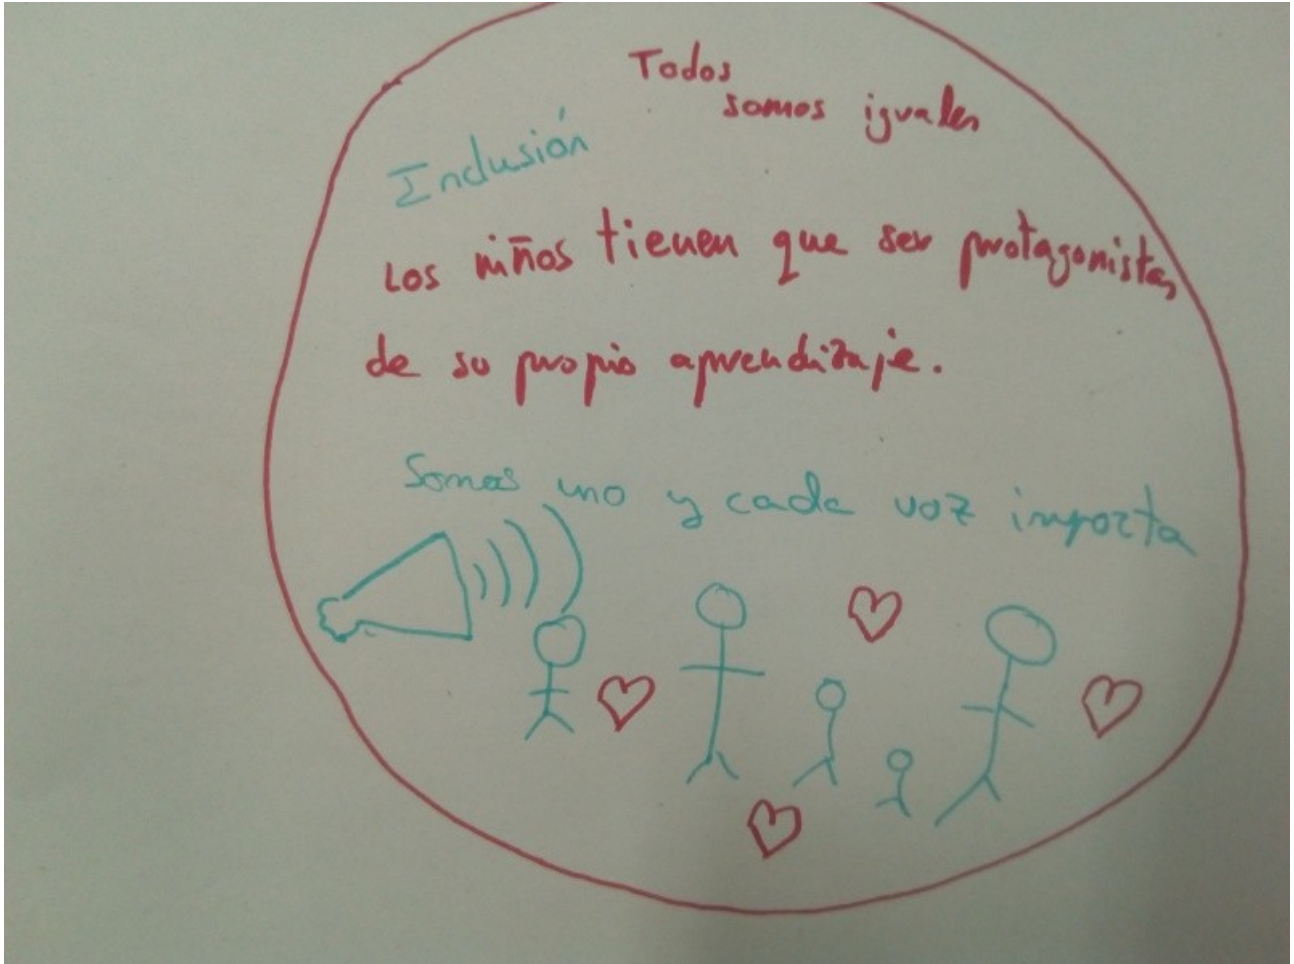 Todos
somos iguales
Inclusión
Los niños tienen que ser protagonistas
de su propio aprendizaje.
Somos uno y cada voz importa